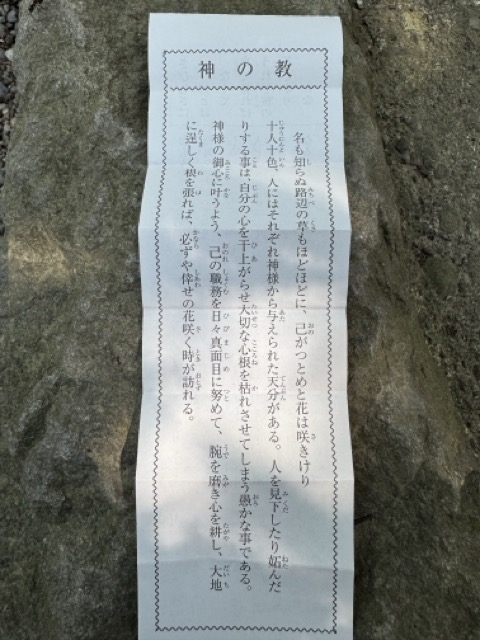 神の教
名も知らぬ路辺の草もほどほどに、己がつとめと花は咲きけり
十人十色、人にはそれぞれ神様から与えられた天分がある。人を見下したり妬んだ
りする事は、自分の心を干上がらせ大切な心根を枯れさせてしまう愚かな事である。
神様の御心に叶うよう、己の職務を日々真面目に努めて、腕を磨き心を耕し、大地
に逞しく根を張れば、必ずや倖せの花咲く時が訪れる。